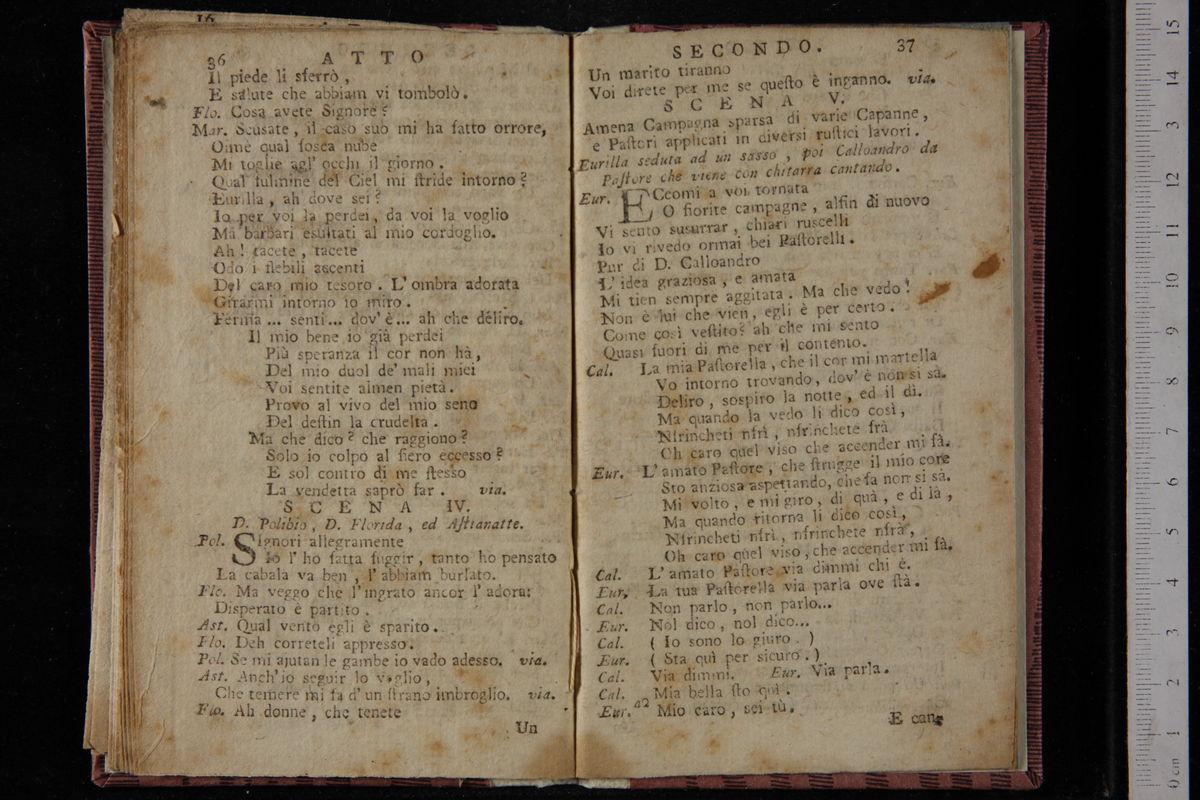 36 ATTO
Il piede li sferrò,
E salute che abbiam vi tombolò.
Flo. Cosa avete Signore?
Mar. Scusate, il caso suo mi ha fatto orrore,
Oimè qual fosca nube
Mi toglie agl' occhi il giorno.
Qual fulmine del Ciel mi stride intorno?
Eurilla, ah dove sei?
Io per voi la perdei, da voi la voglio
Ma barbari esultati al mio cordoglio.
Ah! tacete, tacete
Odo i flebili accenti
Del caro mio tesoro. L' ombra adorata
Girarmi intorno io miro.
Ferma ... senti... dov' è... ah che deliro.
Il mio bene io già perdei
Più speranza il cor non hà,
Del mio duol de' mali miei
Voi sentite almen pietà.
Provo al vivo del mio seno
Del destin la crudeltà.
Ma che dico? che raggiono?
Solo io colpo al fiero eccesso?
E sol contro di me stesso
La vendetta saprò far. via.
SCENA IV.
D. Polibio, D. Florida, ed Astianatte.
Pol. Signori allegramente
Io l' ho fatta fuggir, tanto ho pensato
La cabala va ben, l' abbiam burlato.
Flo. Ma veggo che l' ingrato ancor l' adora:
Disperato è partito.
Ast. Qual vento egli è sparito.
Flo. Deh correteli appresso.
Pol. Se mi ajutan le gambe io vado adesso. via.
Ast. Anch' io seguir lo voglio,
Che temere mi fa d' un strano imbroglio. via.
Flo. Ah donne, che tenete
Un
SECONDO. 37
Un marito tiranno
Voi direte per me se questo è inganno. via.
SCENA V.
Amena Campagna sparsa di varie Capanne,
e Pastori applicati in diversi rustici lavori.
Eurilla seduta ad un sasso, poi Calloandro da
Pastore che viene con chitarra cantando.
Eur. ECcomi a voi tornata
O fiorite campagne, alfin di nuovo
Vi sento susurrar, chiari ruscelli
Io vi rivedo ormai bei Pastorelli.
Pur di D. Calloandro
L' idea graziosa, e amata
Mi tien sempre aggitata. Ma che vedo!
Non è lui che vien, egli è per certo.
Come così vestito? ah che mi sento
Quasi fuori di me per il contento.
Cal. La mia Pastorella, che il cor mi martella
Vo intorno trovando, dov' è non si sà.
Deliro, sospiro la notte, ed il dì.
Ma quando la vedo li dico così,
Nfrincheti nfrì, nfrinchete frà
Oh caro quel viso che accender mi fà.
Eur. L' amato Pastore, che strugge il mio core
Sto anziosa aspettando, che fa non si sà.
Mi volto, e mi giro, di quà, e di là,
Ma quando ritorna li dico così,
Nfrincheti nfrì, nfrinchete nfrà,
Oh caro quel viso, che accender mi fà.
Cal. L' amato Pastore via dimmi chi è.
Eur. La tua Pastorella via parla ove stà.
Cal. Non parlo, non parlo...
Eur. Nol dico, nol dico...
Cal. ( Io sono lo giuro. )
Eur. ( Sta quì per sicuro. )
Cal. Via dimmi. Eur. Via parla.
Cal. Mia bella sto quì.
Eur. a2 Mio caro, sei tù.
E can-